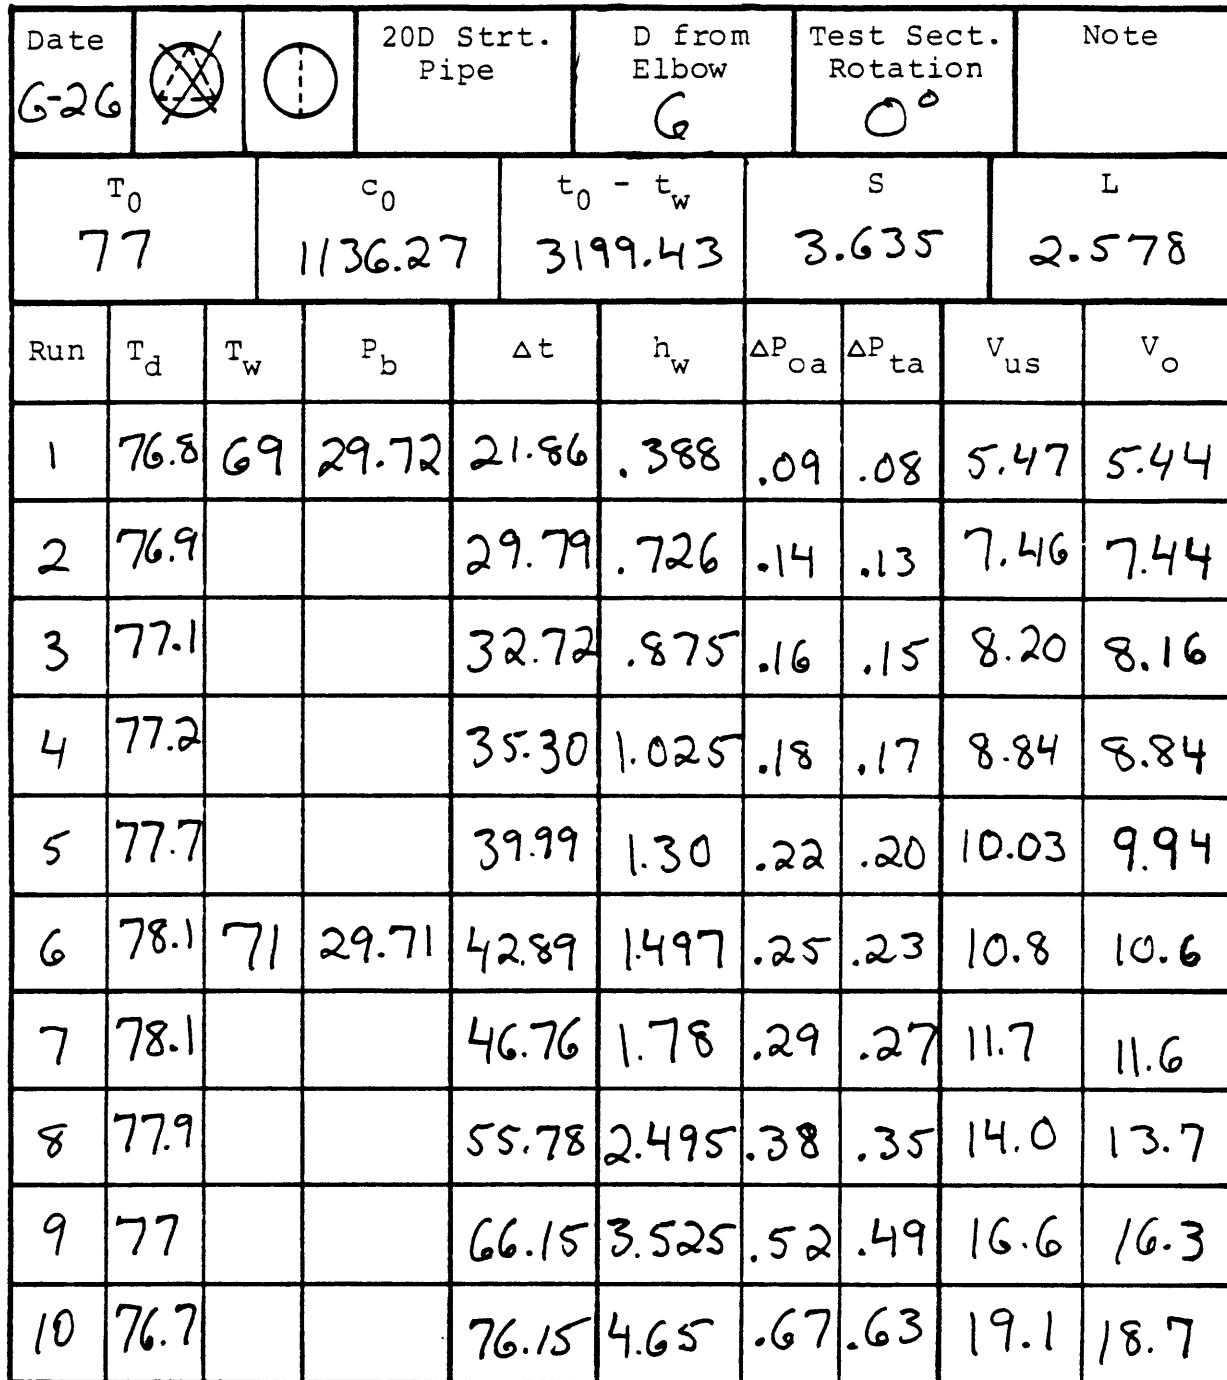 Date 20D Strt. Pipe D from Elbow Test Sect. Rotation Note
6-26 6 0°
T0 c0 t0 - tw S L
77 1136.27 3199.43 3.635 2.578
Run Td Tw Pb Δt hw ΔPoa ΔPta Vus Vo
1 76.8 69 29.72 21.86 .388 .09 .08 5.47 5.44
2 76.9 29.79 .726 .14 .13 7.46 7.44
3 77.1 32.72 .875 .16 .15 8.20 8.16
4 77.2 35.30 1.025 .18 .17 8.84 8.84
5 77.7 39.99 1.30 .22 .20 10.03 9.94
6 78.1 71 29.71 42.89 1.497 .25 .23 10.8 10.6
7 78.1 46.76 1.78 .29 .27 11.7 11.6
8 77.9 55.78 2.495 .38 .35 14.0 13.7
9 77 66.15 3.525 .52 .49 16.6 16.3
10 76.7 76.15 4.65 .67 .63 19.1 18.7